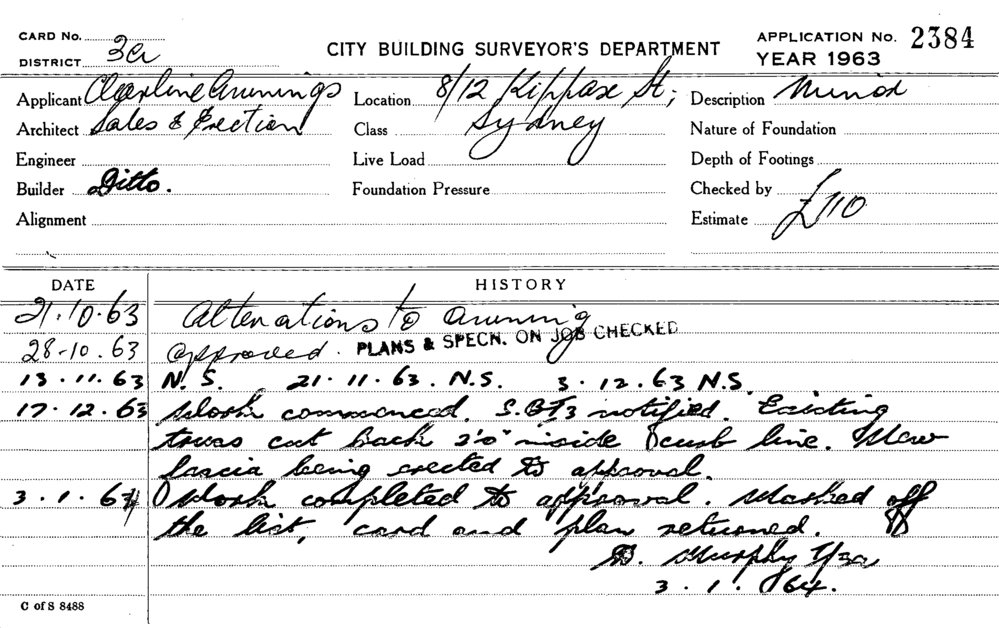 CARD No.
CITY BUILDING SURVEYOR'S DEPARTMENT
APPLICATION No. 2384
DISTRICT 3a
YEAR 1963
Applicant Clearline Awnings
Location 8/12 Kippax St;
Description Minor
Architect Sales & Erection
Class Sydney
Nature of Foundation
Engineer
Live Load
Depth of Footings
Builder Ditto.
Foundation Pressure
Checked by
Alignment
Estimate £110
DATE HISTORY
21.10.63 Alterations to awning
28-10.63 approved. PLANS & SPECN. ON JOB CHECKED
13.11.63 N.S. 21.11.63. N.S. 3.12.63 N.S.
17.12.63 Work commenced. notified. Existing
truss cut back 2'0" inside kurb line. New
fascia being erected to approval.
3.1.64 Work completed to approval. Marked off
the list, card and plan returned.
D. Murphy
3.1.64.
C of S 8488